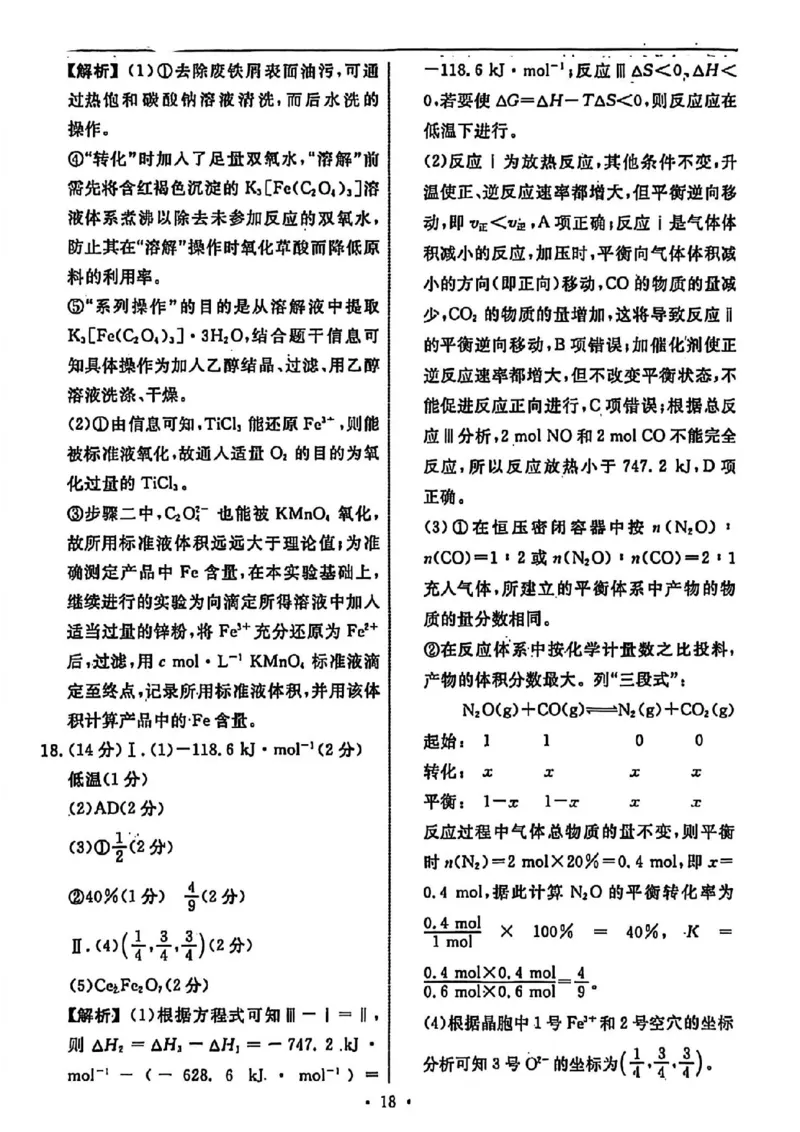 【解析】(1)①去除废铁屑表面油污,可通
过热饱和碳酸钠溶液清洗,而后水洗的
操作。
④“转化”时加入了足量双氧水,“溶解”前
需先将含红褐色沉淀的 K₃[Fe(C₂O₄)₃]溶
液体系煮沸以除去未参加反应的双氧水,
防止其在“溶解”操作时氧化草酸而降低原
料的利用率。
⑤“系列操作”的目的是从溶解液中提取
K₃[Fe(C₂O₄)₃]·3H₂O,结合题干信息可
知具体操作为加入乙醇结晶、过滤、用乙醇
溶液洗涤、干燥。
(2)①由信息可知,TiCl₃ 能还原 Fe³⁺,则能
被标准液氧化,故通入适量 O₂ 的目的为氧
化过量的 TiCl₃。
③步骤二中,C₂O₄²⁻ 也能被 KMnO₄ 氧化,
故所用标准液体积远远大于理论值;为准
确测定产品中 Fe 含量,在本实验基础上,
继续进行的实验为向滴定所得溶液中加入
适当过量的锌粉,将 Fe³⁺充分还原为 Fe²⁺
后,过滤,用 c mol·L⁻¹ KMnO₄ 标准液滴
定至终点,记录所用标准液体积,并用该体
积计算产品中的 Fe 含量。
18.(14分)Ⅰ.(1)−118.6 kJ·mol⁻¹(2分)
低温(1分)
(2)AD(2分)
(3)①1/2(2分)
②40%(1分) 4/9(2分)
Ⅱ.(4)(1/4,3/4,3/4)(2分)
(5)Ce₂Fe₂O₇(2分)
【解析】(1)根据方程式可知ⅲ−ⅰ=ⅱ,
则 ΔH₂=ΔH₃−ΔH₁=−747.2 kJ·
mol⁻¹−(−628.6 kJ·mol⁻¹)=
−118.6 kJ·mol⁻¹;反应ⅲ ΔS<0,ΔH<
0,若要使 ΔG=ΔH−TΔS<0,则反应应在
低温下进行。
(2)反应ⅰ为放热反应,其他条件不变,升
温使正、逆反应速率都增大,但平衡逆向移
动,即 v正<v逆,A 项正确;反应ⅰ是气体体
积减小的反应,加压时,平衡向气体体积减
小的方向(即正向)移动,CO 的物质的量减
少,CO₂ 的物质的量增加,这将导致反应ⅱ
的平衡逆向移动,B 项错误;加催化剂使正
逆反应速率都增大,但不改变平衡状态,不
能促进反应正向进行,C 项错误;根据总反
应ⅲ分析,2 mol NO 和 2 mol CO 不能完全
反应,所以反应放热小于 747.2 kJ,D 项
正确。
(3)①在恒压密闭容器中按 n(N₂O)∶
n(CO)=1∶2 或 n(N₂O)∶n(CO)=2∶1
充入气体,所建立的平衡体系中产物的物
质的量分数相同。
②在反应体系中按化学计量数之比投料,
产物的体积分数最大。列“三段式”:
N₂O(g)+CO(g)⇌N₂(g)+CO₂(g)
起始: 1 1 0 0
转化: x x x x
平衡: 1−x 1−x x x
反应过程中气体总物质的量不变,则平衡
时 n(N₂)=2 mol×20%=0.4 mol,即 x=
0.4 mol,据此计算 N₂O 的平衡转化率为
0.4 mol/1 mol × 100% = 40%, K =
0.4 mol×0.4 mol/0.6 mol×0.6 mol=4/9。
(4)根据晶胞中 1 号 Fe³⁺和 2 号空穴的坐标
分析可知 3 号 O²⁻的坐标为(1/4,3/4,3/4)。
·18·